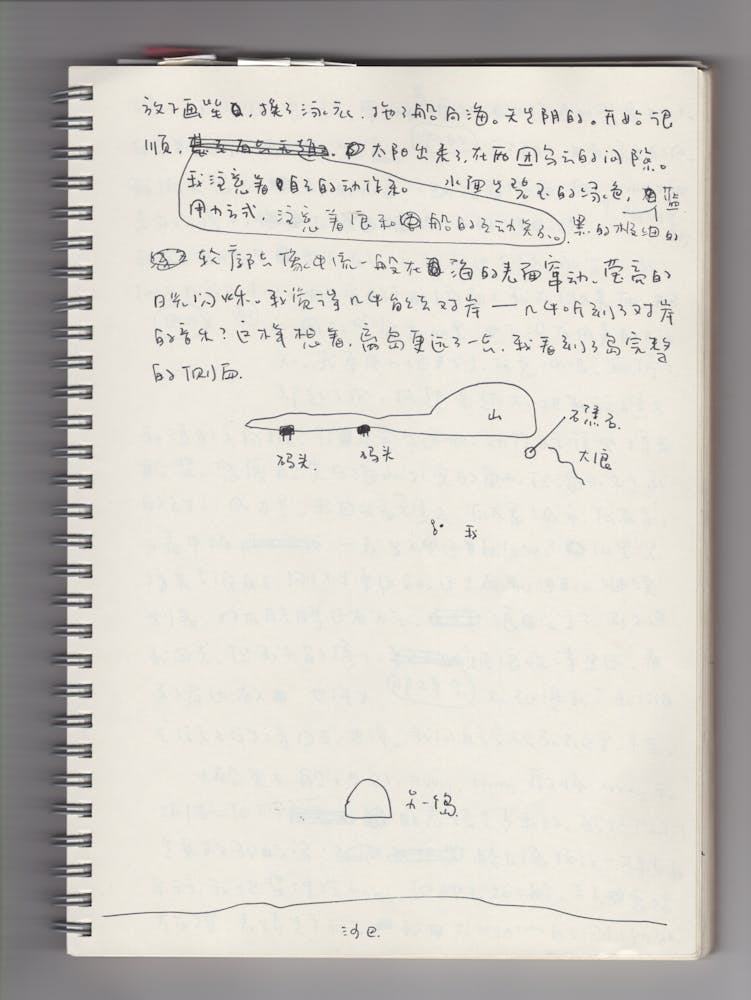 放下画笔, 换了泳衣, 拖了船向海。天是阴的。开始很
顺, 太阳出来了, 在两团乌云的间隙。
我注意着自己的动作和 水面是碧玉的绿色,
蓝
用力方式, 注意着浪和船的互动关系。黑的极细的
轮廓线像电流一般在海的表面窜动、莹亮的
日光闪烁。我觉得几乎能去对岸——几乎听到了对岸
的音乐? 这样想着, 离岛更远了一点, 我看到了岛完整
的侧面.
山
石礁石.
码头.
码头
大浪
我
另一岛.